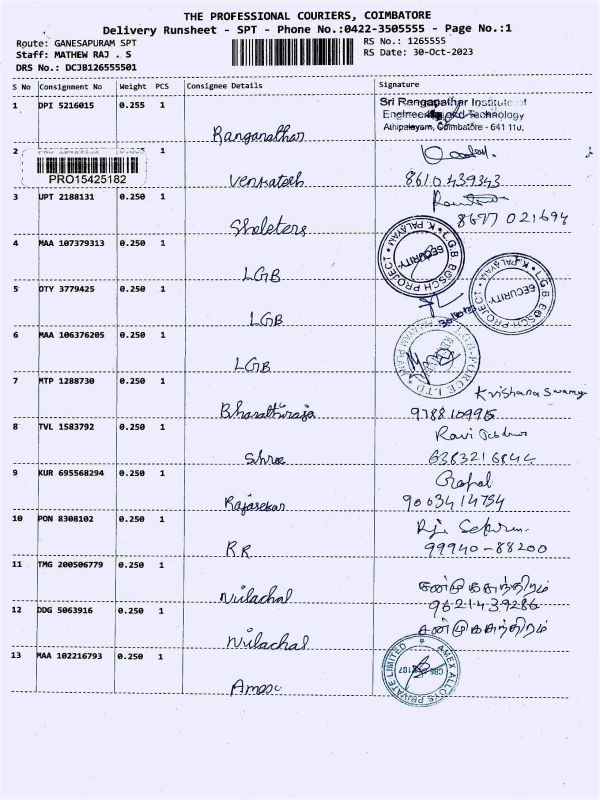 THE PROFESSIONAL COURIERS, COIMBATORE
Delivery Runsheet - SPT - Phone No.:0422-3505555 - Page No.:1
Route: GANESAPURAM SPT
Staff: MATHEW RAJ . S
DRS No.: DCJB126555501
RS No.: 1265555
RS Date: 30-Oct-2023
S No Consignment No Weight PCS Consignee Details Signature
1 DPI 5216015 0.255 1
Ranganathar
Sri Ranganathar Institute of
Engineering and Technology
Athipalayam, Coimbatore - 641 110.
2 1
PRO15425182
Venkatesh
8610439343
3 UPT 2188131 0.250 1
Shelters
8677 021694
4 MAA 107379313 0.250 1
LGB
L.G.B BOSCH PROJECT K. PALAYAM
SECURITY
5 OTY 3779425 0.250 1
LGB
L.G.B BOSCH PROJECT K. PALAYAM
SECURITY
6 MAA 106376205 0.250 1
LGB
L.G.B-FORGE LTD
7 MTP 1288730 0.250 1
Bharathiraja
Krishana Swamy
9788109915
8 TVL 1583792 0.250 1
Shree
Ravi
6383216844
9 KUR 695568294 0.250 1
Rajasekar
Gopal
9003414754
10 PON 8308102 0.250 1
RR
99940-88200
11 TMG 200506779 0.250 1
Nilachal
சண்முகசுந்திரம்
9621439286
12 DDG 5063916 0.250 1
Nilachal
சண்முகசுந்திரம்
13 MAA 102216793 0.250 1
AMEX ALLOYS PRIVATE LIMITED